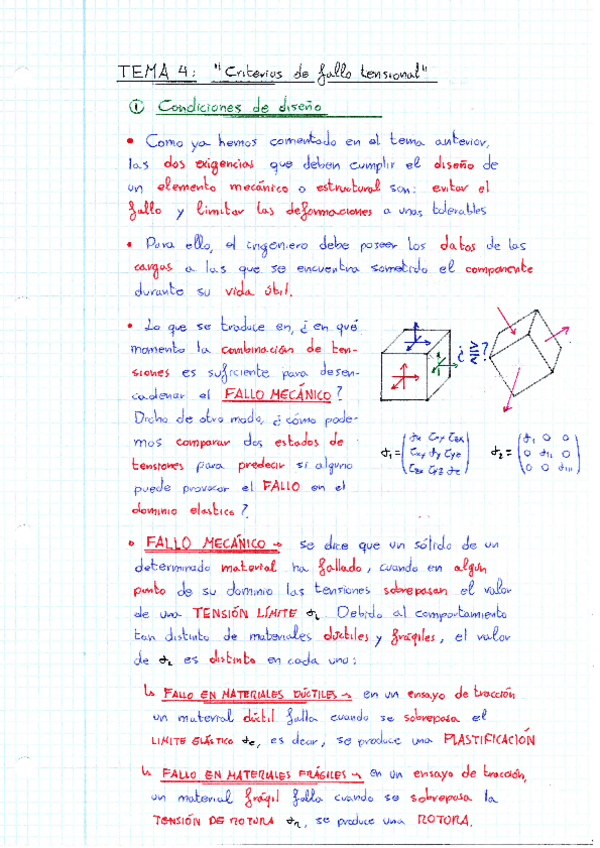 TEMA 4: "Criterios de fallo tensional"
① Condiciones de diseño
• Como ya hemos comentado en el tema anterior,
las dos exigencias que deben cumplir el diseño de
un elemento mecánico o estructural son: evitar el
fallo y limitar las deformaciones a unas tolerables
• Para ello, el ingeniero debe poseer los datos de las
cargas a las que se encuentra sometido el componente
durante su vida útil.
• Lo que se traduce en, ¿en qué
momento la combinación de ten-
siones es suficiente para desen-
cadenar el FALLO MECÁNICO?
Dicho de otro modo, ¿cómo pode-
mos comparar dos estados de
tensiones para predecir si alguno
puede provocar el FALLO en el
dominio elastico?
• FALLO MECÁNICO → se dice que un sólido de un
determinado material ha fallado, cuando en algún
punto de su dominio las tensiones sobrepasan el valor
de una TENSIÓN LÍMITE σL. Debido al comportamiento
tan distinto de materiales dúctiles y frágiles, el valor
de σL es distinto en cada uno:
↳ FALLO EN MATERIALES DÚCTILES → en un ensayo de tracción
un material dúctil falla cuando se sobrepasa el
LIMITE ELÁSTICO σe, es decir, se produce una PLASTIFICACIÓN
↳ FALLO EN MATERIALES FRÁGILES → en un ensayo de tracción,
un material frágil falla cuando se sobrepasa la
TENSIÓN DE ROTURA σR, se produce una ROTURA.